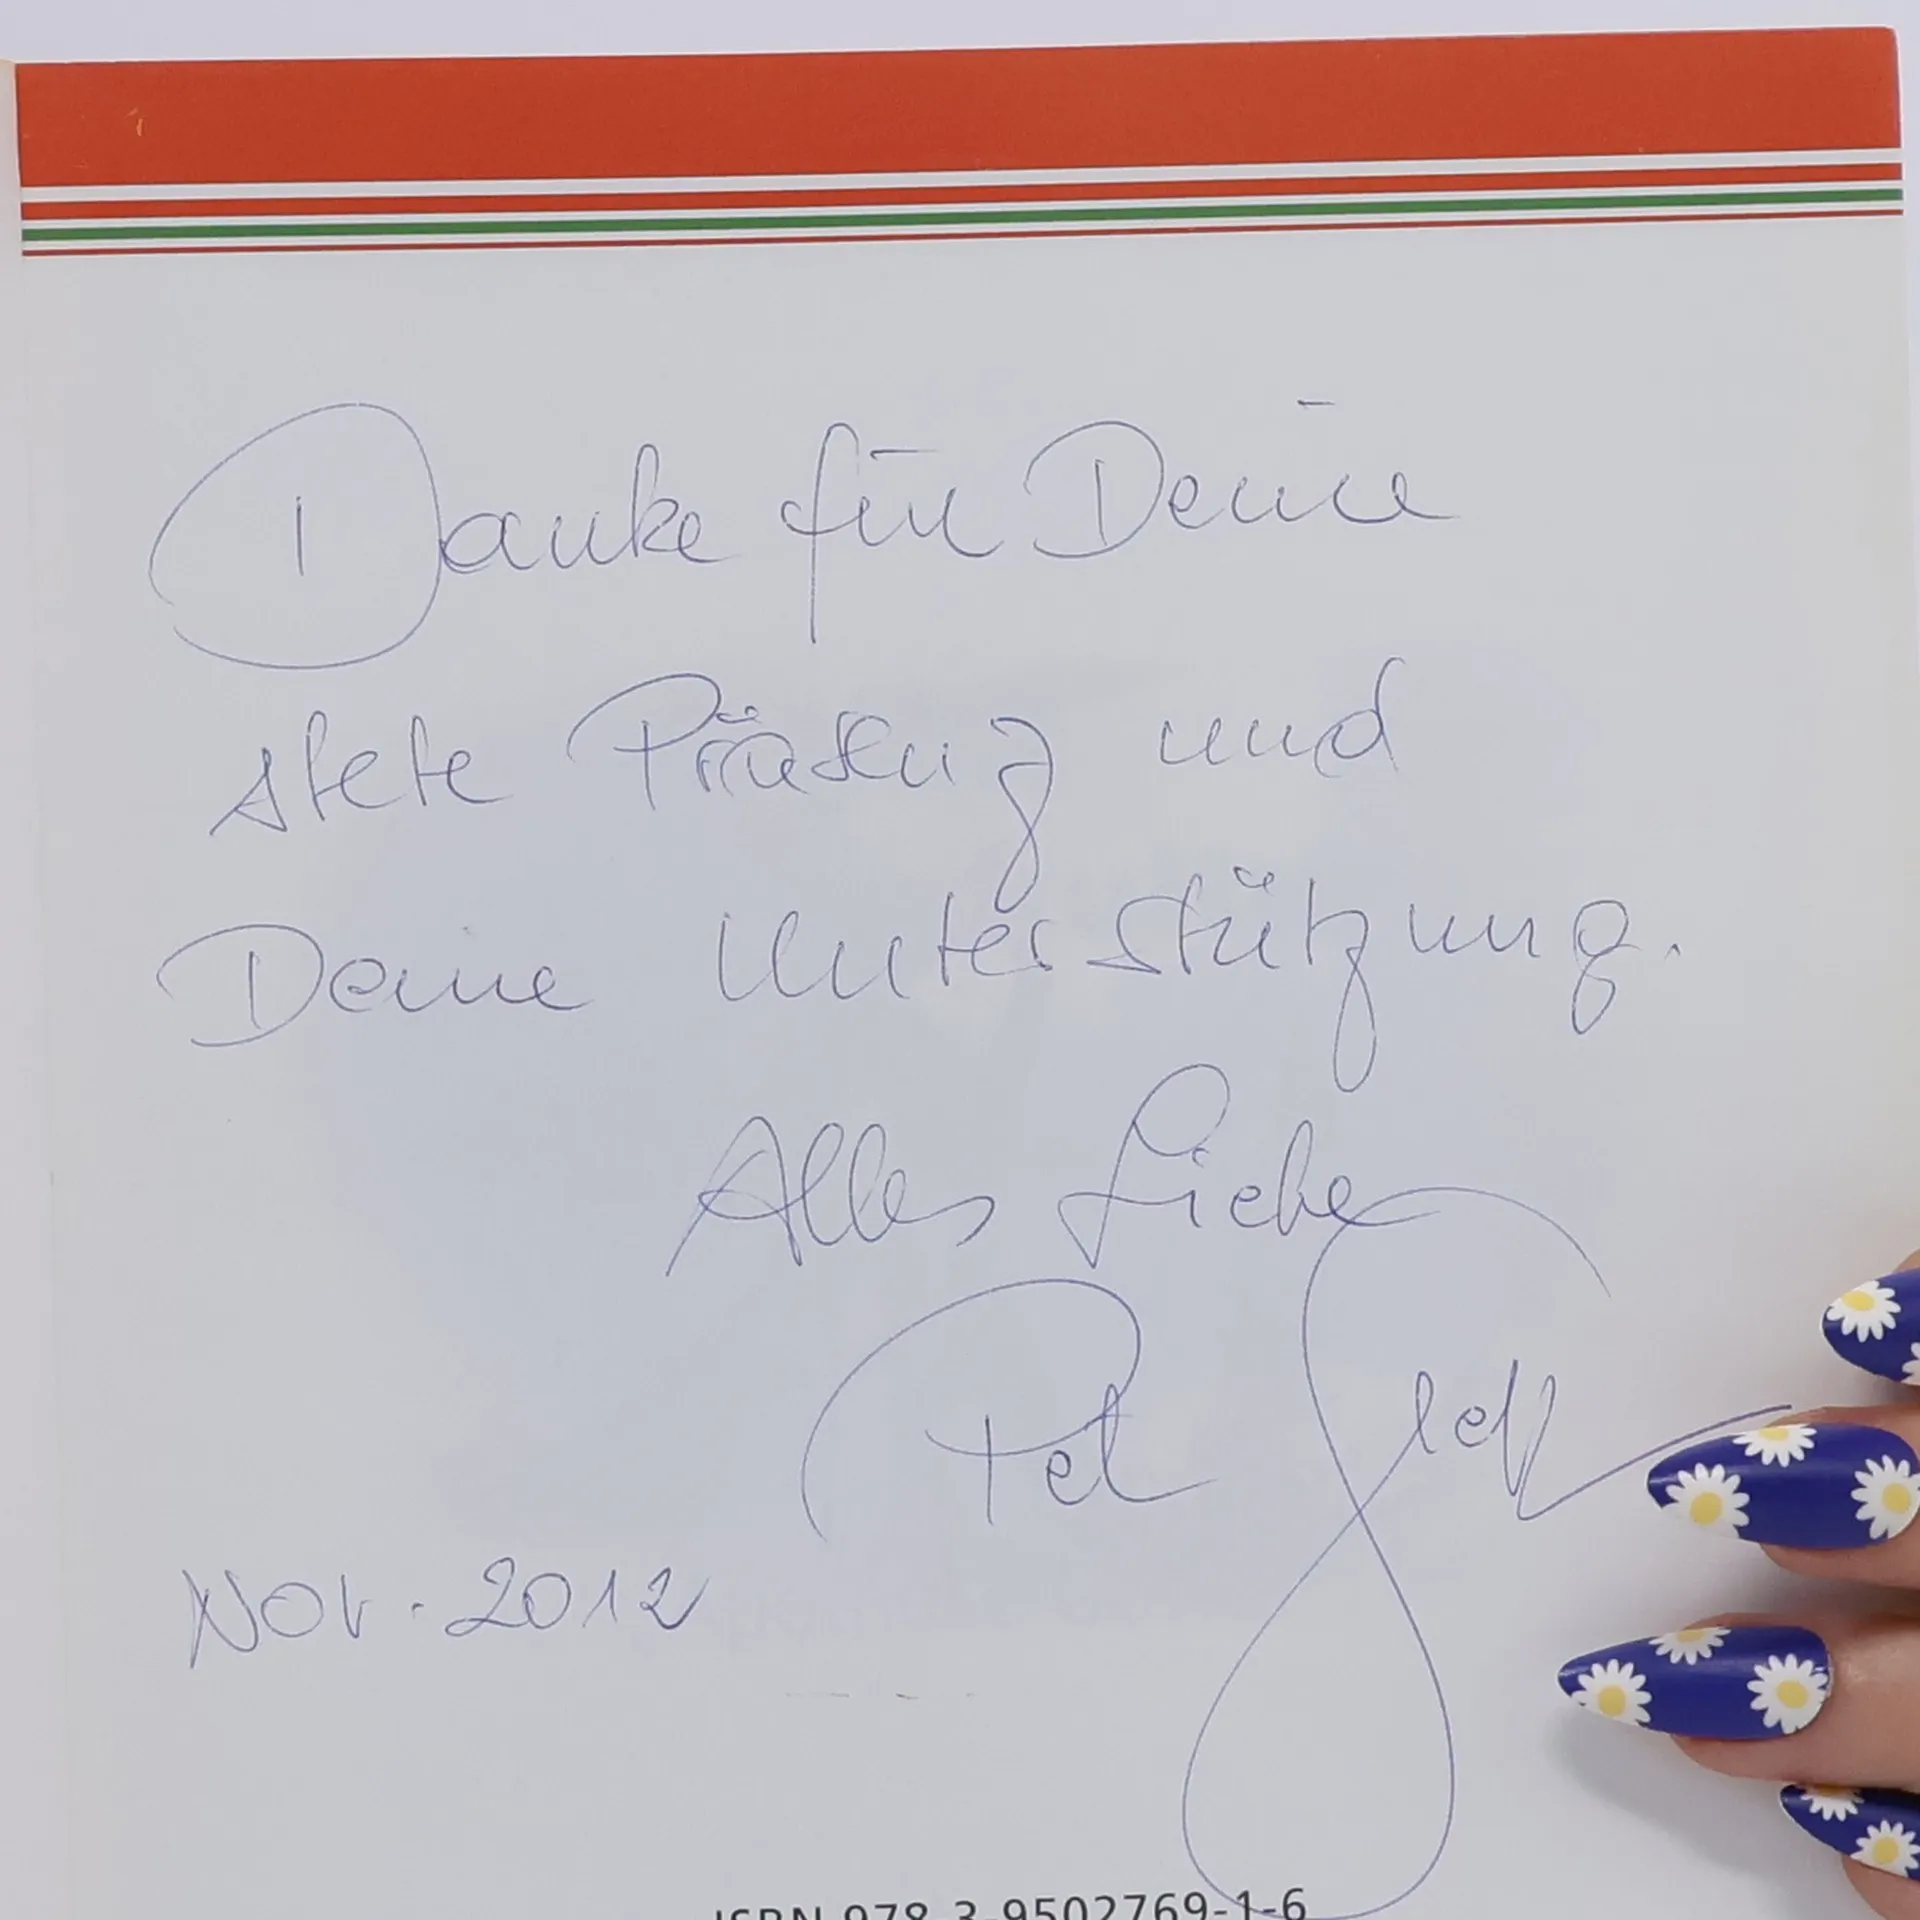 Danke für Deine
stete Präsenz und
Deine Unterstützung.
Alles Liebe
Nov. 2012
ISBN 978-3-9502769-1-6